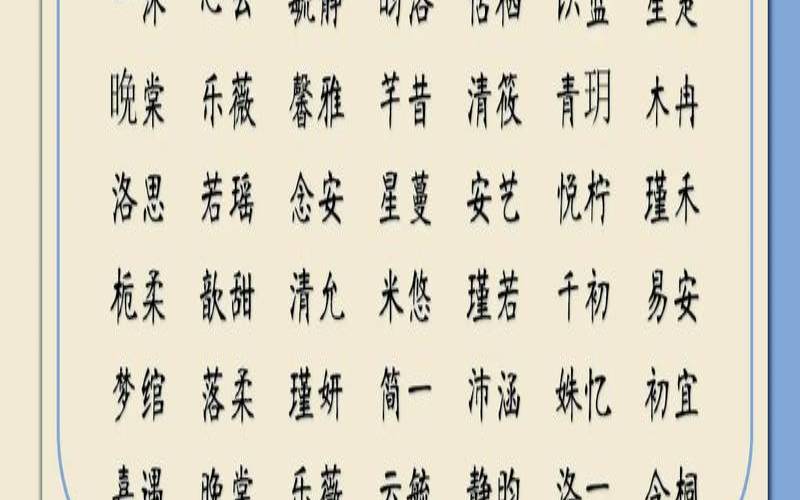 晚棠 乐薇 馨雅 芊昔 清筱 青玥 木冉
洛思 若瑶 念安 星蔓 安艺 悦柠 瑾禾
栀柔 歆甜 清允 米悠 瑾若 千初 易安
梦绾 落柔 瑾妍 简一 沛涵 姝忆 初宜
晚棠 乐薇 云毓 静昀 洛一